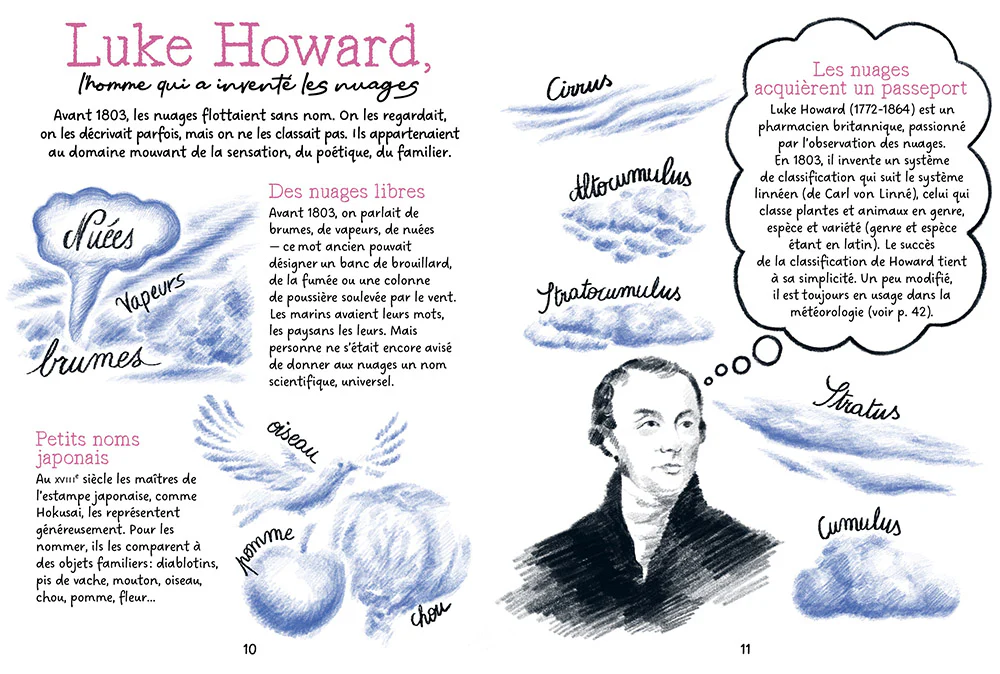 Luke Howard,
l'homme qui a inventé les nuages
Avant 1803, les nuages flottaient sans nom. On les regardait,
on les décrivait parfois, mais on ne les classait pas. Ils appartenaient
au domaine mouvant de la sensation, du poétique, du familier.
Nuées
Vapeurs
brumes
Des nuages libres
Avant 1803, on parlait de
brumes, de vapeurs, de nuées
— ce mot ancien pouvait
désigner un banc de brouillard,
de la fumée ou une colonne
de poussière soulevée par le vent.
Les marins avaient leurs mots,
les paysans les leurs. Mais
personne ne s'était encore avisé
de donner aux nuages un nom
scientifique, universel.
Petits noms
japonais
Au XVIIIe siècle les maîtres de
l'estampe japonaise, comme
Hokusai, les représentent
généreusement. Pour les
nommer, ils les comparent à
des objets familiers : diablotins,
pis de vache, mouton, oiseau,
chou, pomme, fleur...
oiseau
pomme
chou
10
Cirrus
Altocumulus
Stratocumulus
Les nuages
acquièrent un passeport
Luke Howard (1772-1864) est un
pharmacien britannique, passionné
par l'observation des nuages.
En 1803, il invente un système
de classification qui suit le système
linnéen (de Carl von Linné), celui qui
classe plantes et animaux en genre,
espèce et variété (genre et espèce
étant en latin). Le succès
de la classification de Howard tient
à sa simplicité. Un peu modifié,
il est toujours en usage dans la
météorologie (voir p. 42).
Stratus
Cumulus
11